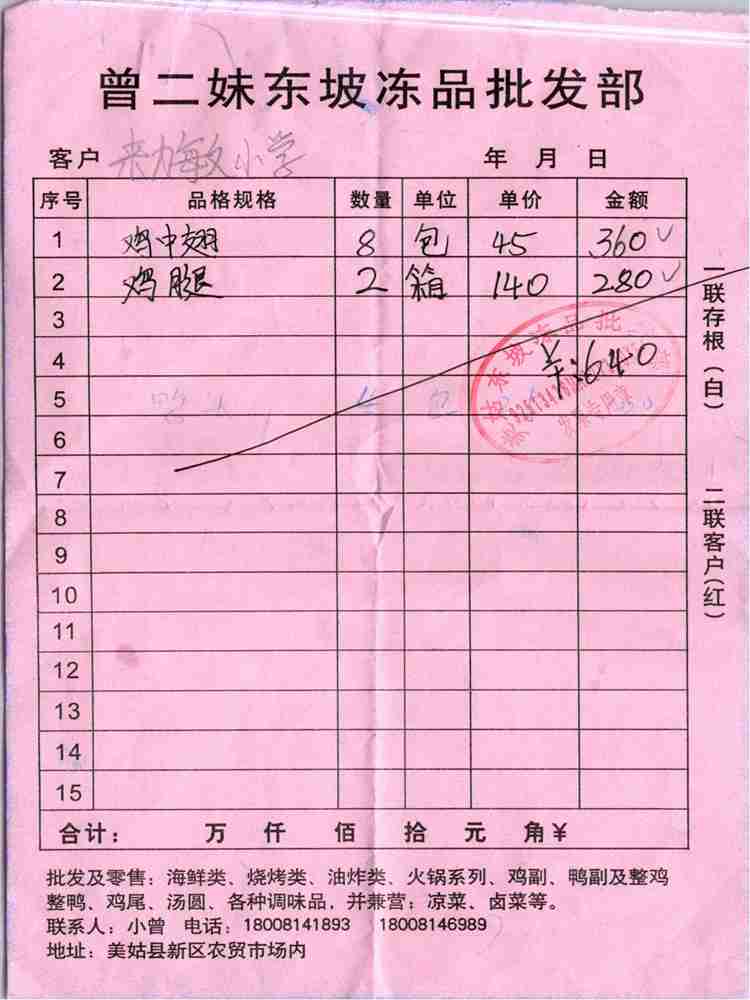 曾二妹东坡冻品批发部
客户 勒敏小学 年 月 日
序号 品格规格 数量 单位 单价 金额
1 鸡中翅 8 包 45 360
2 鸡腿 2 箱 140 280
3
4 羊:640
5
6
7
8
9
10
11
12
13
14
15
合计： 万 仟 佰 拾 元 角¥
批发及零售：海鲜类、烧烤类、油炸类、火锅系列、鸡副、鸭副及整鸡
整鸭、鸡尾、汤圆、各种调味品，并兼营：凉菜、卤菜等。
联系人：小曾 电话：18008141893 18008146989
地址：美姑县新区农贸市场内
一联存根（白）
二联客户（红）